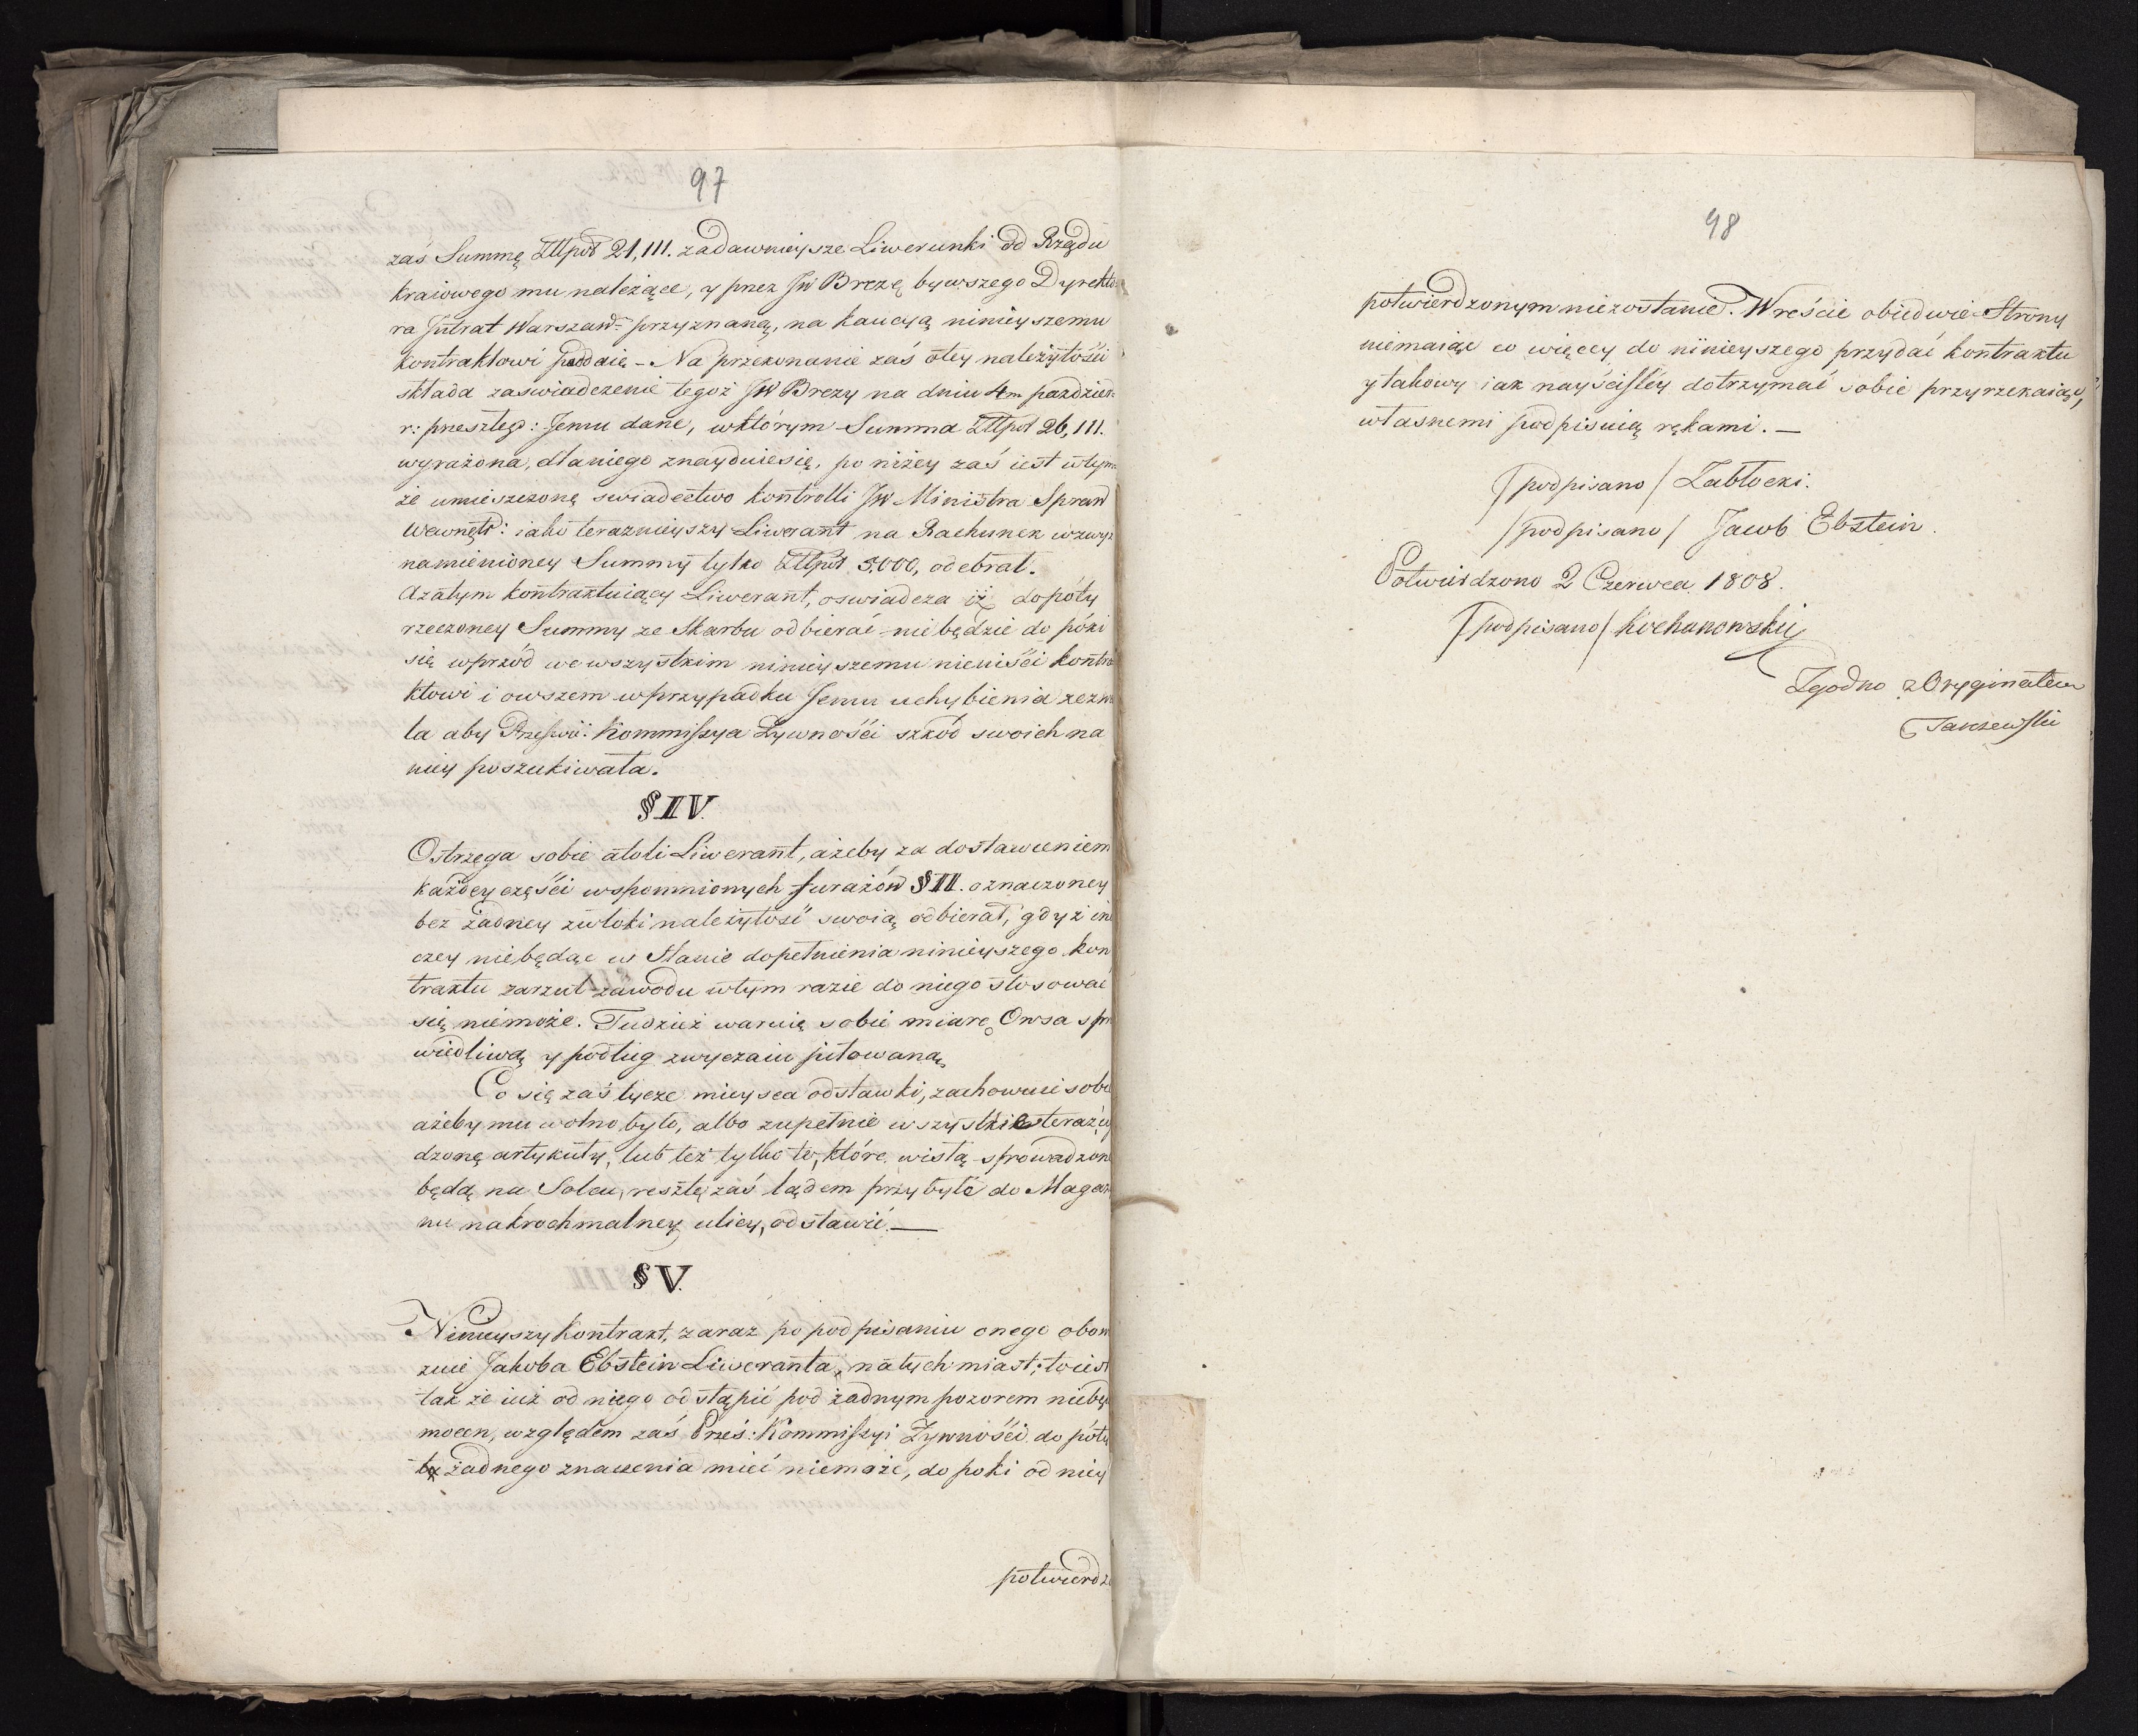 97
zaś Summę Złłpol 21,111. zadawnieysze Liwerunki od Rządu
kraiowego mu należące, y przez JW Brezę bywszego Dyrekto
ra Jntrat Warszaw: przyznaną, na kaucyą ninieyszemu
kontraktowi poddaie – Na przekonanie zaś otey należytości
składa zaswiadczenie tegoż JW Brezy na dniu 4m pazdzier:
r: przeszłego: Jemu dane, wktórym Summa Złłpol 26,111.
wyrażona, dlaniego znayduiesię, po niżey zaś iest wtym
że umieszczone swiadectwo kontrolli JW Ministra Spraw
Wewnętr: iako teraznieyszy Liwerant na Rachunek wzwyż
namienioney Summy tylko Złłpol 5,000, odebrał.
Azatym kontraktuiący Liwerant, oswiadcza iż dopóty
rzeczoney Summy ze Skarbu odbierać niebędzie do póki
się wprzód wewszystkim ninieyszemu nieuiści kontra
ktowi i owszem wprzypadku Jemu uchybienia zezwa
la aby Prześwie: Kommissya Zywności szkód swoich na
niey poszukiwała.
§ IV.
Ostrzega sobie atoli Liwerant, ażeby za dostawieniem
każdey części wspomnionych furażów § II. oznaczoney
bez żadney zwłoki należytość swoią odbierał, gdyż in
czey niebędąc w Stanie dopełnienia ninieyszego kon
traktu zarzut zawodu wtym razie do niego stosować
się niemoże. Tudzież waruie sobie miarę Owsa spra
wiedliwą y podług zwyczaiu
Co się zaś tycze mieysca odstawki, zachowuie sobie
ażeby mu wolno było, albo zupełnie wszystkie
dzone artykuły, lub też tylko te, które wisłą sprowadzone
będą na Solcu, resztę zaś lądem przybyłe do Magazy
nu nakrochmalney ulicy, odstawić. —
§ V.
Ninieyszy kontrakt, zaraz po podpisaniu onego obow
zuie Jakoba Ebstein Liweranta, natychmiast; toiest
tak że iuż od niego odstąpić pod żadnym pozorem niebę
mocen, względem zaś Prześ: Kommissyi Zywności do póty
żadnego znaczenia mieć niemoże, do poki od niey
potwierdzo
98
potwierdzonym niezostanie. Wreście obiedwie Strony
niemaiąc co więcey do ninieyszego przydać kontraktu
y takowy iak nayściśley dotrzymać sobie przyrzekaiąc,
własnemi podpisuią rękami. —
/podpisano/ Zabłocki.
/podpisano/ Jacob Ebstein.
Potwierdzono 2 Czerwca 1808.
/podpisano/ Kochanowski
Zgodno z Oryginałem